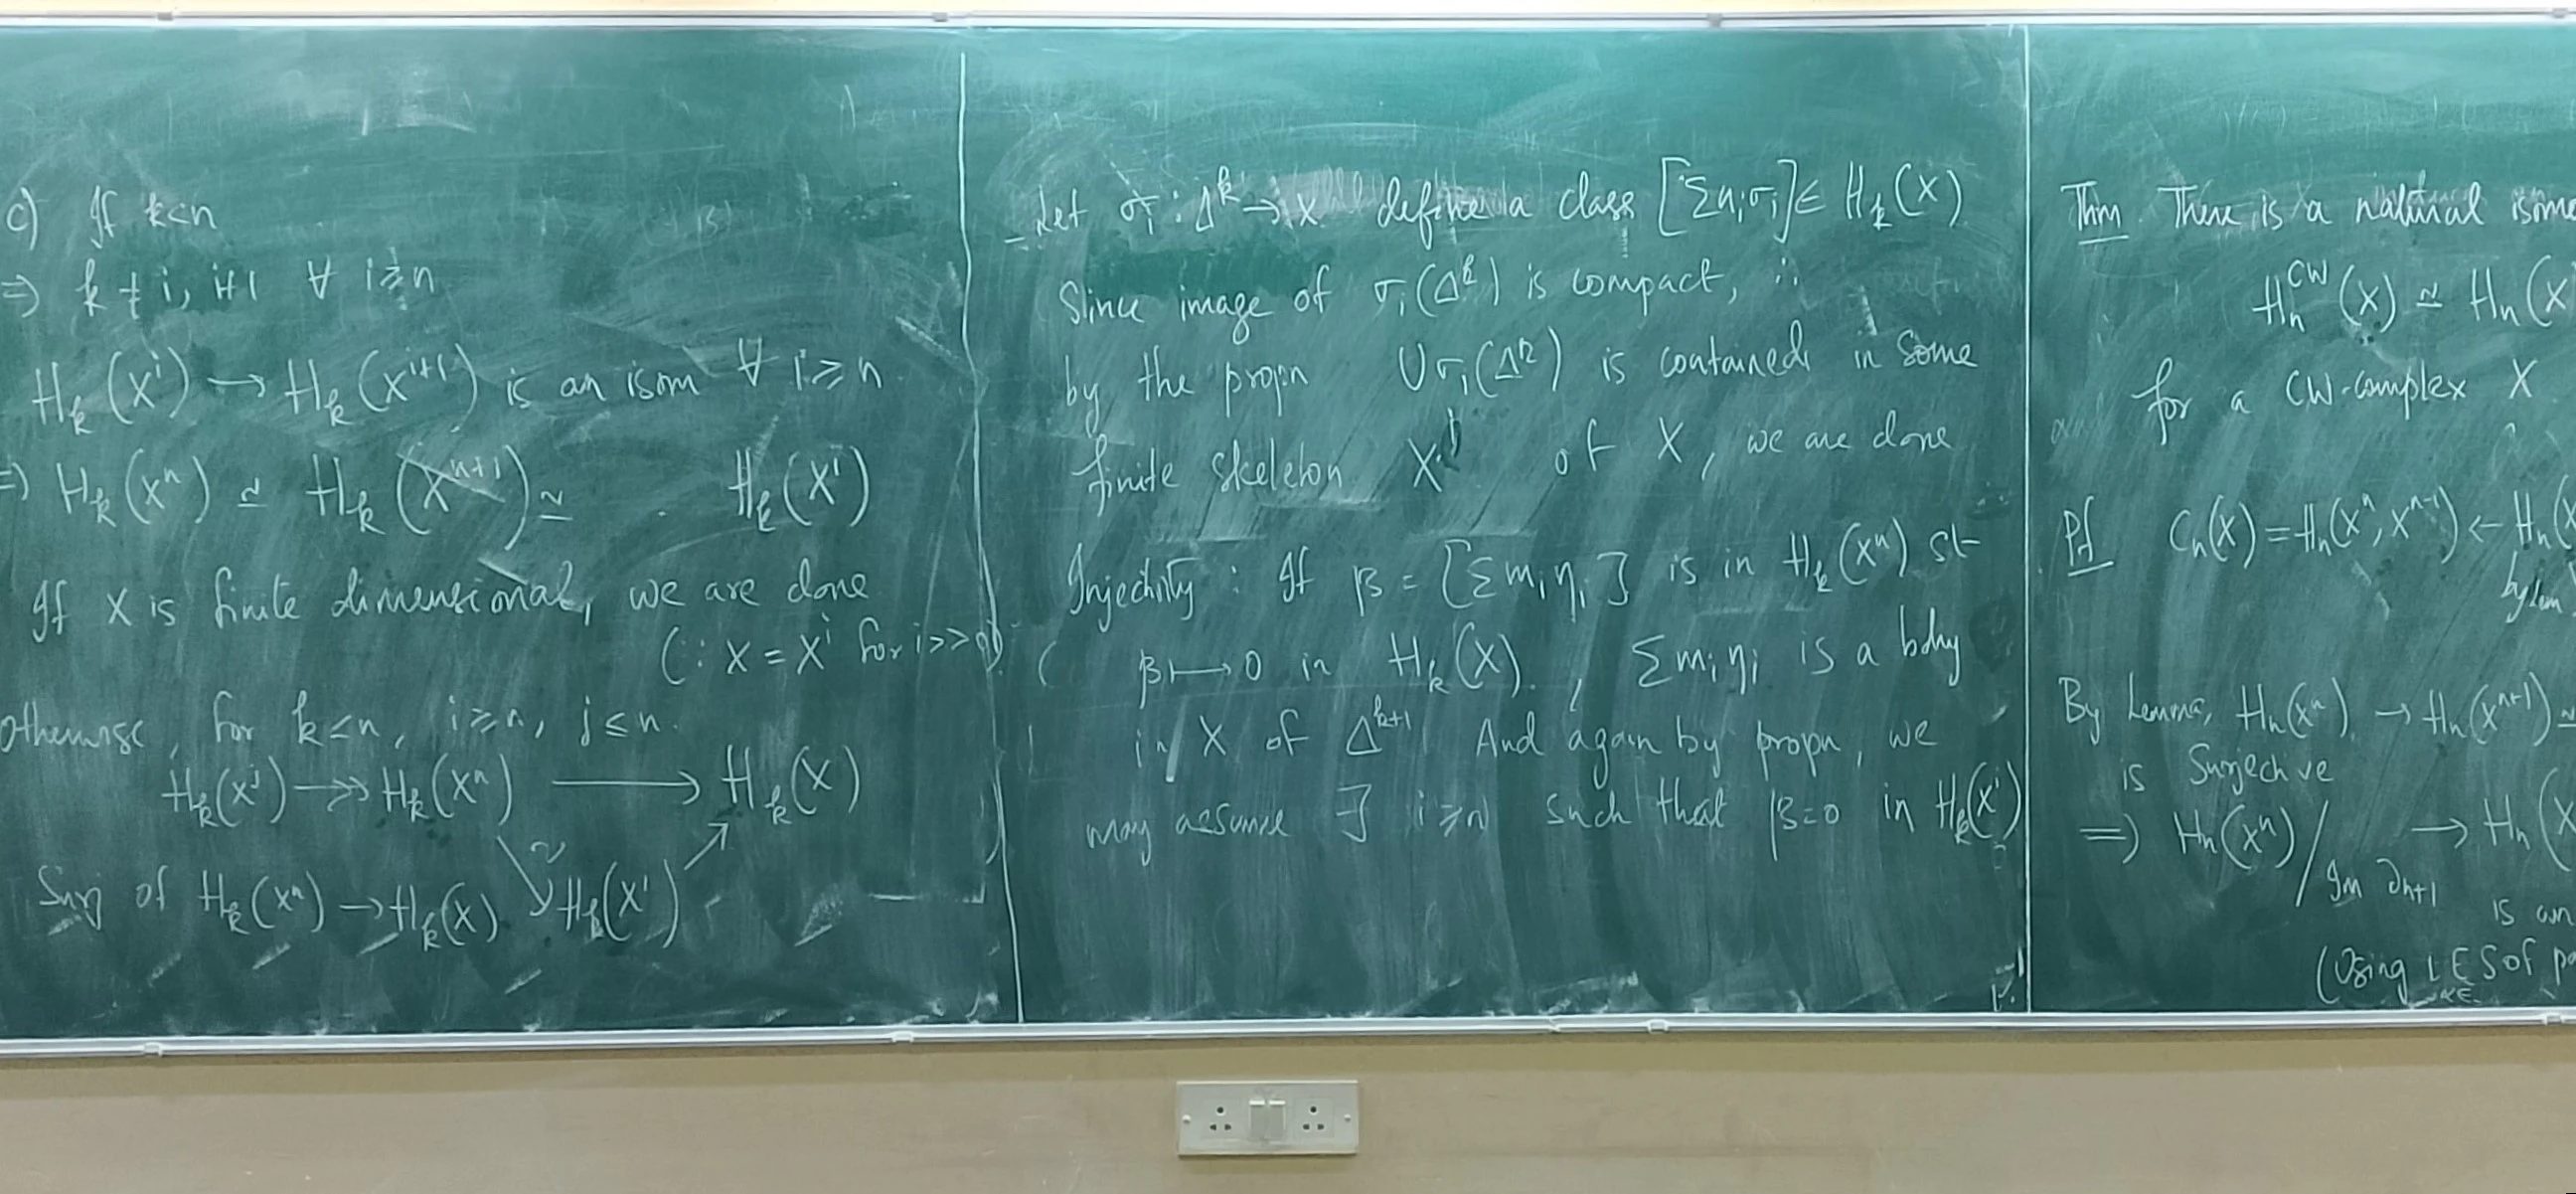 c) If k<n
⇒) k ≠ i, i+1 ∀ i≥n
H_k(X^i) → H_k(X^{i+1}) is an isom ∀ i≥n
⇒) H_k(X^n) ≃ H_k(X^{n+1}) ≃ H_k(X^i)
If X is finite dimensional, we are done
(∵ X = X^i for i>>0)
Otherwise, for k<n, i≥n, j≤n.
H_k(X^j) ↠ H_k(X^n) ⟶ H_k(X)
↘ ~ H_k(X^i) ↗
Surj of H_k(X^n) → H_k(X)
Let σ_i : Δ^k → X define a class [Σn_iσ_i] ∈ H_k(X)
Since image of σ_i(Δ^k) is compact, ∴
by the propn ∪σ_i(Δ^k) is contained in some
finite skeleton X^j of X, we are done
Injectivity : If β = [Σm_iη_i] is in H_k(X^n) st
β ⟼ 0 in H_k(X), Σm_iη_i is a bdry
in X of Δ^{k+1} And again by propn, we
may assume ∃ i≥n such that β=0 in H_k(X^i)
Thm. There is a natural isomo
H_n^{CW}(X) ≃ H_n(X
for a CW-complex X
Pf C_n(X) = H_n(X^n, X^{n-1}) ← H_n(X
by lem
By Lemma, H_n(X^n) → H_n(X^{n+1}) ≃
is Surjective
⇒) H_n(X^n) / Im ∂_{n+1} → H_n(X
is an
(Using LES of pa